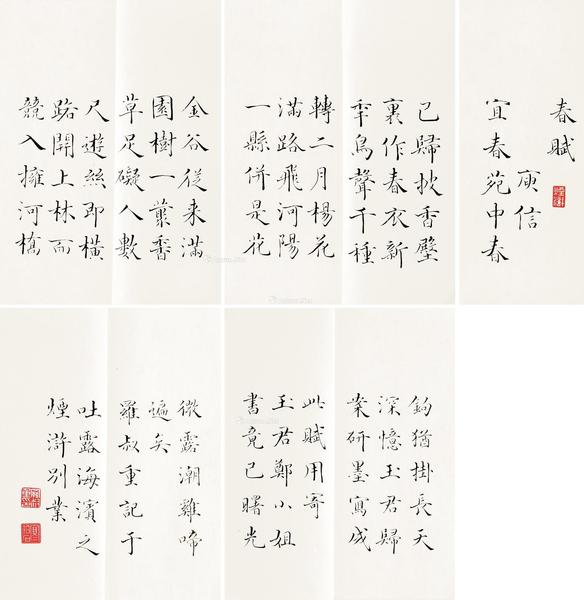 春賦
庾信
宜春苑中春
已歸披香殿
裏作春衣新
年鳥聲千種
轉二月楊花
滿路飛河陽
一縣併是花
金谷從来滿
園樹一叢香
草足礙人數
尺遊絲即橫
路開上林而
競入擁河橋
鈎猶掛長天
深憶玉君歸
案研墨寫成
此賦用寄
玉君鄭小姐
書竟已曙光
微露潮雞啼
遍矣
羅叔重記于
吐露海濱之
煙滸別業